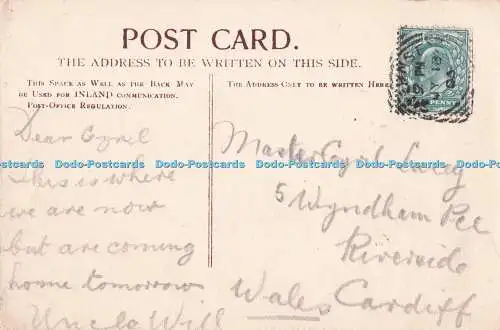 POST CARD.
THE ADDRESS TO BE WRITTEN ON THIS SIDE.
THIS SPACE AS WELL AS THE BACK MAY
BE USED FOR INLAND COMMUNICATION.
POST-OFFICE REGULATION.
THE ADDRESS ONLY TO BE WRITTEN HERE
PENNY
Dear Cyril
this is where
we are now
but are coming
home tomorrow
Uncle Will
Master Cyril Lacey
5 Wyndham Pce
Riverside
Wales Cardiff
Dodo-Postcards Dodo-Postcards Dodo-Postcards Dodo-Postcards Dodo-Postcards Dodo-Postcards